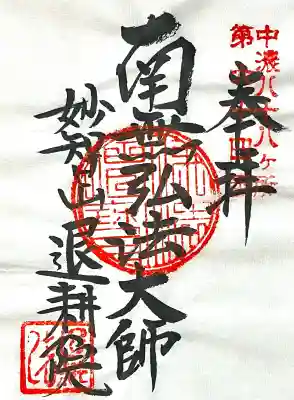 奉拝
南無弘法大師
妙智山退耕院
中濃八十八ヶ所
第